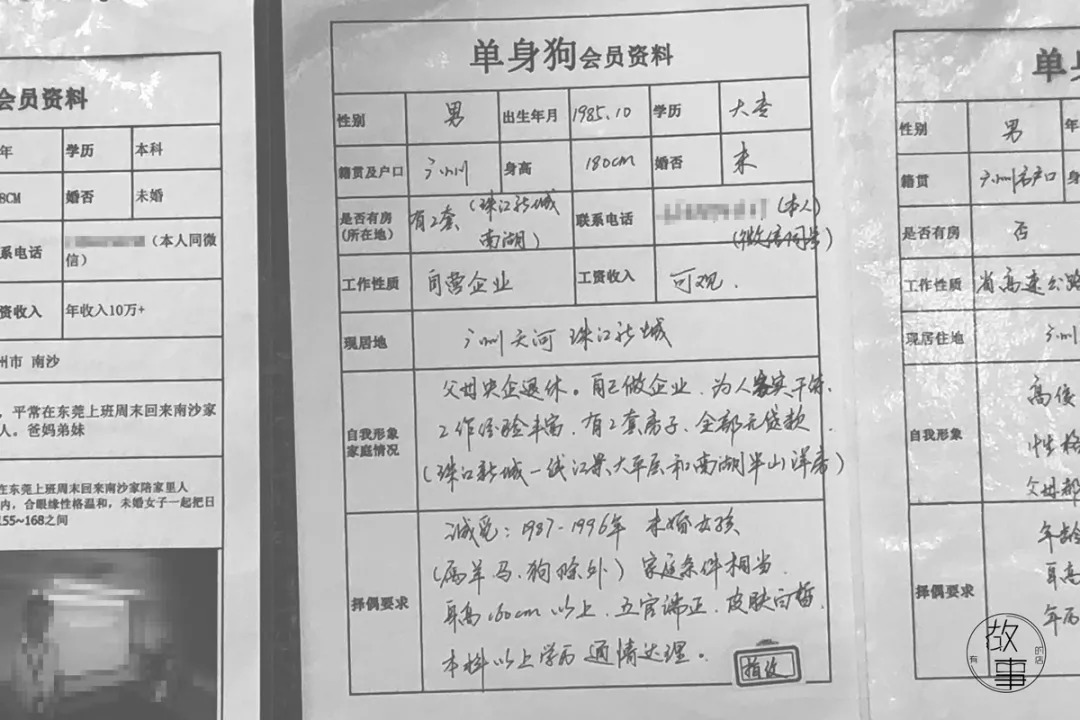 会员资料
年 学历 本科
8CM 婚否 未婚
系电话 （本人同微
信）
资收入 年收入10万+
州市 南沙
，平常在东莞上班周末回来南沙家
人。爸妈弟妹
在东莞上班周末回来南沙家陪家里人
内，合眼缘性格温和，未婚女子一起把日
155~168之间
单身狗会员资料
性别 男 出生年月 1985.10 学历 大专
籍贯及户口 广州 身高 180cm 婚否 未
是否有房
（所在地） 有2套（珠江新城
南湖） 联系电话 （本人）
（微信同号）
工作性质 自营企业 工资收入 可观.
现居地 广州天河 珠江新城
自我形象
家庭情况
父母央企退休。自己做企业，为人
工作经验丰富，有2套房子，全部无贷款
（珠江新城一线江景大平层和南湖半山洋房）
择偶要求
诚觅：1987-1996年 未婚女孩
（属羊、马、狗除外）家庭条件相当.
身高160cm以上，五官端正，皮肤白皙，
本科以上学历 通情达理。
单身
性别 男 年
籍贯 广州市户口 身
是否有房 否
工作性质 省高速公路
现居住地 广州
自我形象
高俊
性格
父母都
择偶要求
年龄
身高
年历
故事
有
的店